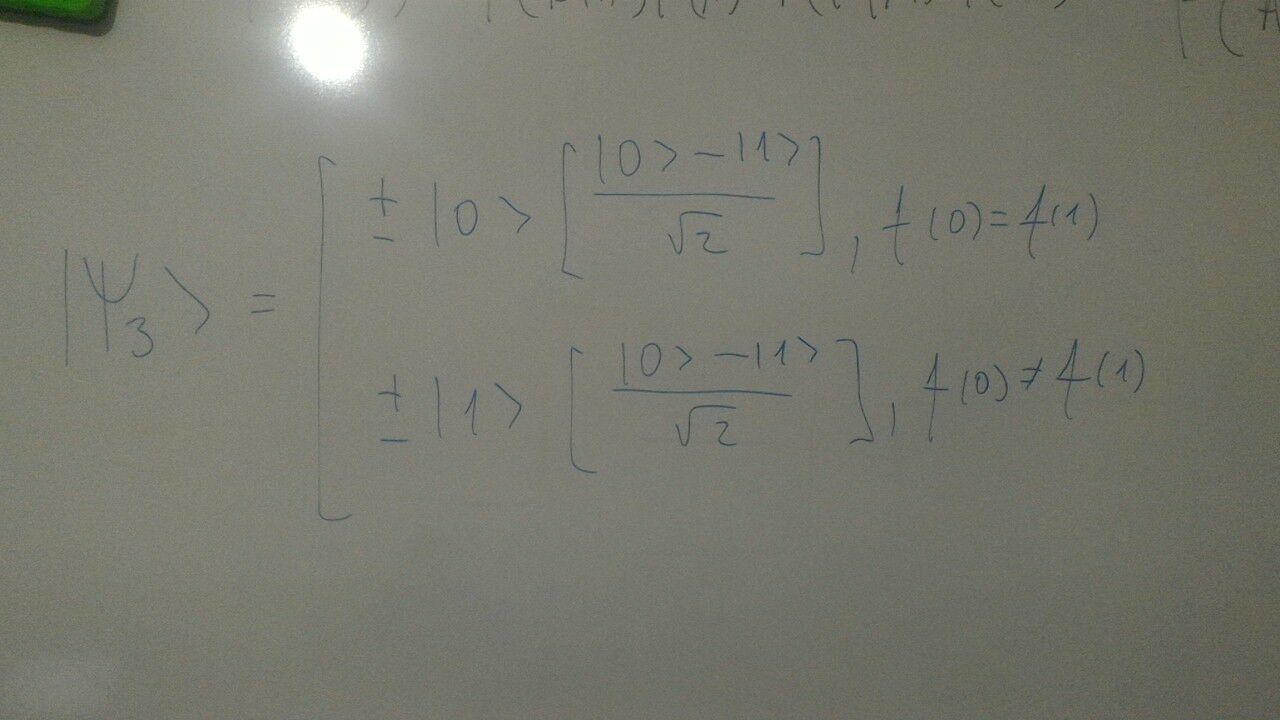 |Ψ₃> = [ ± |0> [ (|0> - |1>) / √2 ], f(0) = f(1)
± |1> [ (|0> - |1>) / √2 ], f(0) ≠ f(1)